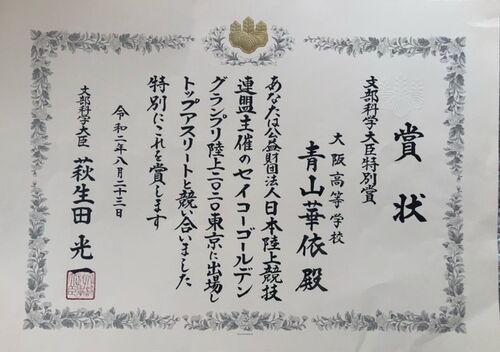 賞状
文部科学大臣特別賞
大阪高等学校
青山華依殿
あなたは公益財団法人日本陸上競技
連盟主催のセイコーゴールデン
グランプリ陸上二〇二〇東京に出場し
トップアスリートと競い合いました
特別にこれを賞します
令和二年八月二十三日
文部科学大臣 萩生田光一